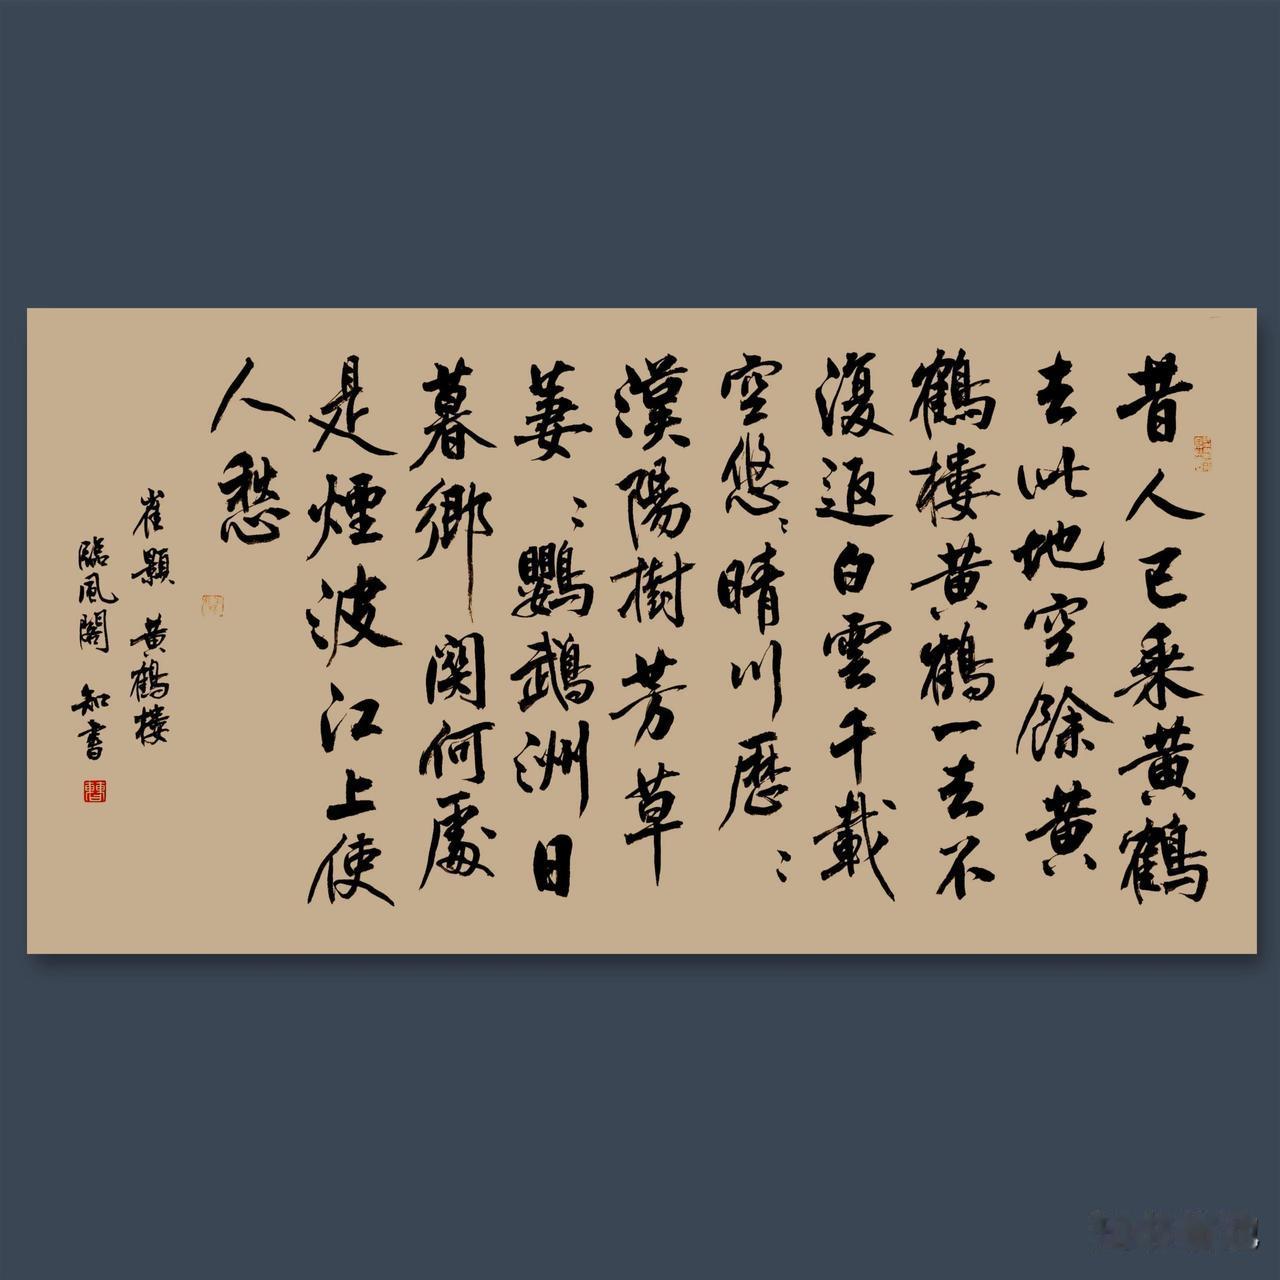 昔人已乘黄鶴
去此地空餘黄
鶴樓黄鶴一去不
復返白雲千載
空悠〻晴川歷〻
漢陽樹芳草
萋〻鸚鵡洲日
暮鄉関何處
是煙波江上使
人愁
崔顥 黄鶴樓
臨風閣 知書